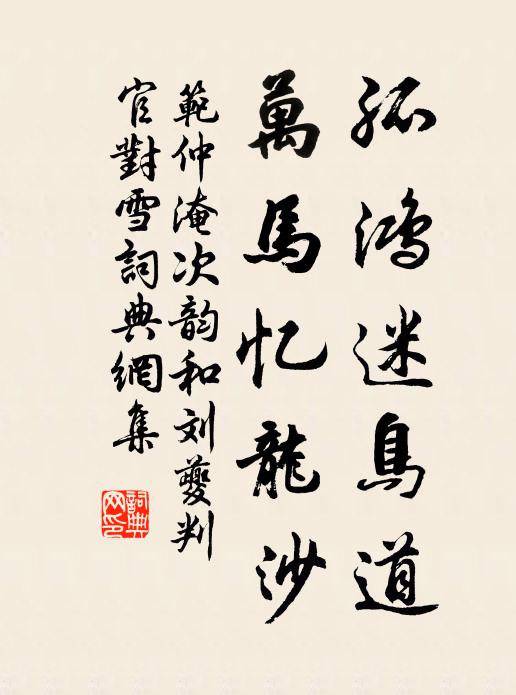 孤鴻迷鳥道
萬馬忆龍沙
範仲淹次韵和刘夔判
官對雪詞典網集
詞典
网印